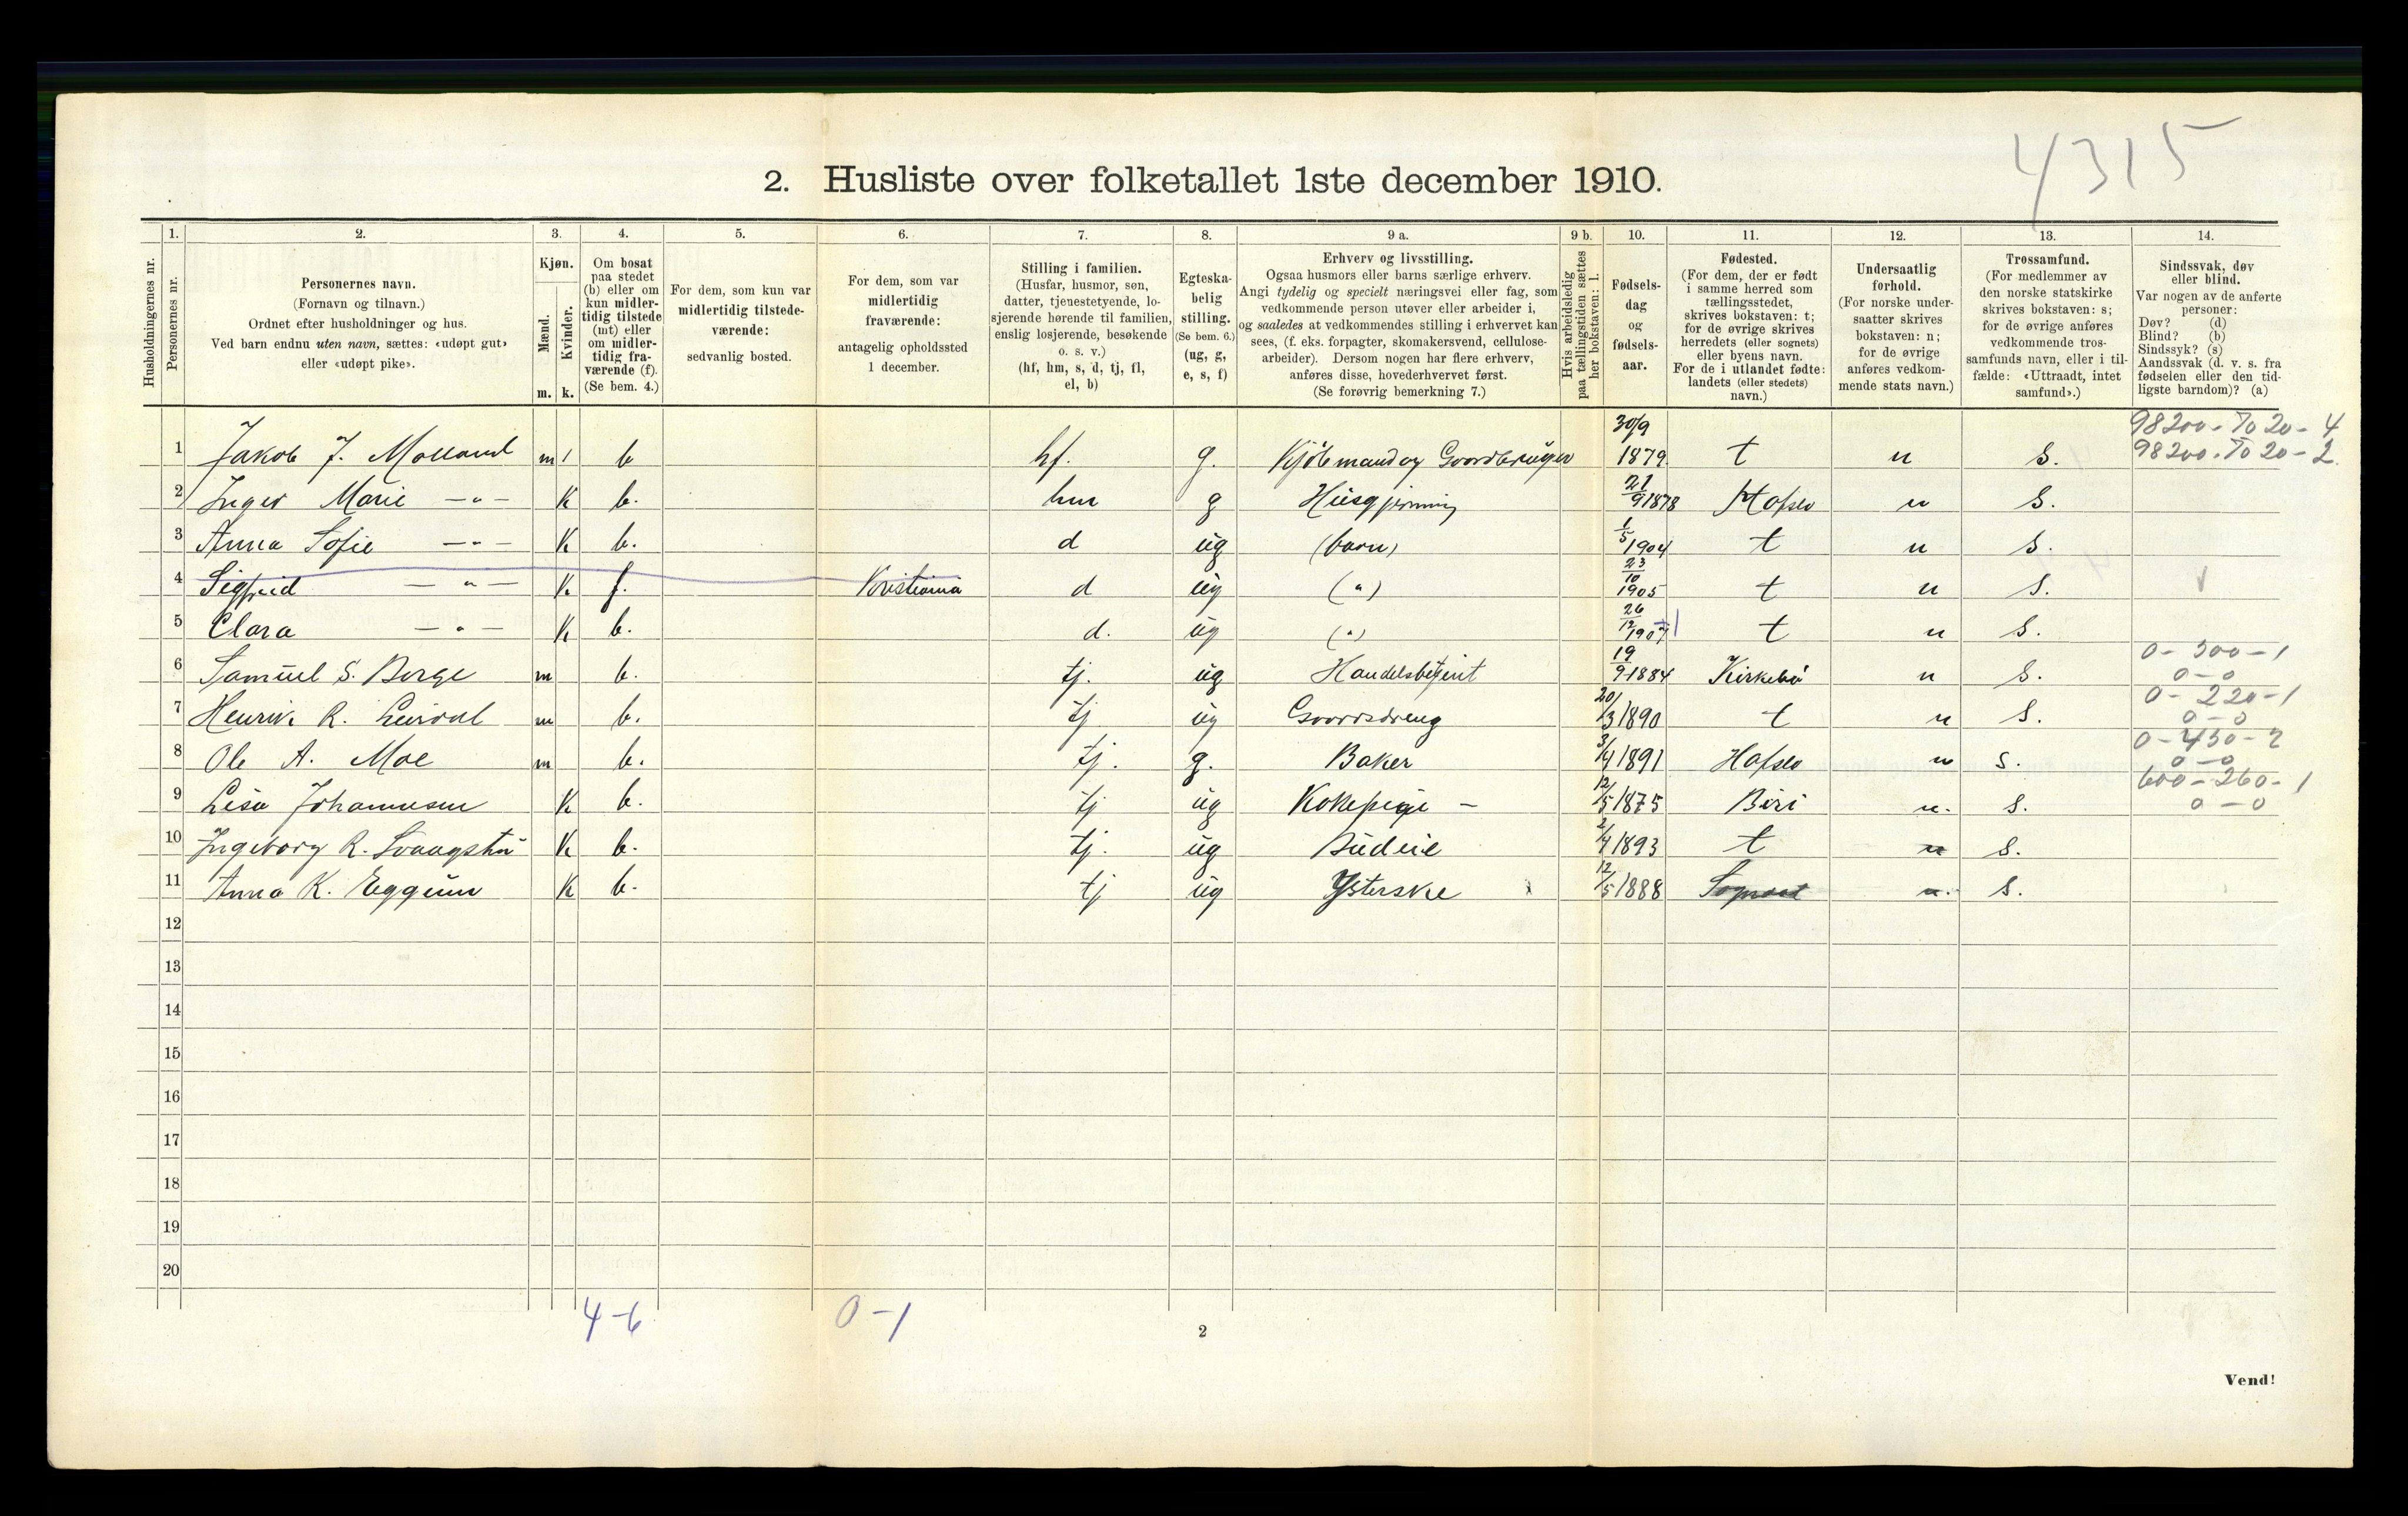 4315
2. Husliste over folketallet 1ste december 1910.
1. 2. 3. 4. 5. 6. 7. 8. 9 a. 9 b. 10. 11. 12. 13. 14.
Husholdningernes nr.
Personernes nr.
Personernes navn.
(Fornavn og tilnavn.)
Ordnet efter husholdninger og hus.
Ved barn endnu uten navn, sættes: «udøpt gut»
eller «udøpt pike».
Kjøn.
Mænd.
Kvinder.
m. k.
Om bosat
paa stedet
(b) eller om
kun midler-
tidig tilstede
(mt) eller
om midler-
tidig fra-
værende (f).
(Se bem. 4.)
For dem, som kun var
midlertidig tilstede-
værende:
sedvanlig bosted.
For dem, som var
midlertidig
fraværende:
antagelig opholdssted
1 december.
Stilling i familien.
(Husfar, husmor, søn,
datter, tjenestetyende, lo-
sjerende hørende til familien,
enslig losjerende, besøkende
o. s. v.)
(hf, hm, s, d, tj, fl,
el, b)
Egteska-
belig
stilling.
(Se bem. 6.)
(ug, g,
e, s, f)
Erhverv og livsstilling.
Ogsaa husmors eller barns særlige erhverv.
Angi tydelig og specielt næringsvei eller fag, som
vedkommende person utøver eller arbeider i,
og saaledes at vedkommendes stilling i erhvervet kan
sees, (f. eks. forpagter, skomakersvend, cellulose-
arbeider). Dersom nogen har flere erhverv,
anføres disse, hovederhvervet først.
(Se forøvrig bemerkning 7.)
Hvis arbeidsledig
paa tællingstiden sættes
her bokstaven: l.
Fødsels-
dag
og
fødsels-
aar.
Fødested.
(For dem, der er født
i samme herred som
tællingsstedet,
skrives bokstaven: t;
for de øvrige skrives
herredets (eller sognets)
eller byens navn.
For de i utlandet fødte:
landets (eller stedets)
navn.)
Undersaatlig
forhold.
(For norske under-
saatter skrives
bokstaven: n;
for de øvrige
anføres vedkom-
mende stats navn.)
Trossamfund.
(For medlemmer av
den norske statskirke
skrives bokstaven: s;
for de øvrige anføres
vedkommende tros-
samfunds navn, eller i til-
fælde: «Uttraadt, intet
samfund».)
Sindssvak, døv
eller blind.
Var nogen av de anførte
personer:
Døv? (d)
Blind? (b)
Sindssyk? (s)
Aandssvak (d. v. s. fra
fødselen eller den tid-
ligste barndom)? (a)
98200 - To 20 - 4
1 Jakob J. Molland m 1 b hf. g. Kjøbmand og Gaardbruger 30/9 1879 t n S. 98200 - To 20 - 2
2 Inger Marie -"- K b. hm g Husgjerning 21/9 1878 Hafslo n S.
3 Anna Sofie -"- K b. d ug (barn) 1/5 1904 t n S.
4 Sigfrid -"- K f. Kristiania d ug (") 23/10 1905 t n S.
5 Clara -"- K b. d. ug (") 26/12 1907 t n S.
0 - 300 - 1
6 Samuel S. Borge m b. tj. ug Handelsbetjent 19/9 1884 Kirkebø n S. 0 - 0
0 - 220 - 1
7 Henrik R. m b. tj ug Gaardsdreng 20/3 1890 t n S. 0 - 0
0 - 450 - 2
8 Ole A. Moe m b. tj. g. Baker 3/4 1891 Hafslo n S. 0 - 0
600 - 260 - 1
9 Lisa Johannesen K b. tj ug Kokepige - 12/5 1875 Biri n. S. 0 - 0
10 Ingeborg R. K b. tj. ug Budeie 2/4 1893 t n S.
11 Anna K. Eggum K b. tj ug Ysterske 12/5 1888 n. S.
12
13
14
15
16
17
18
19
20
4 - 6 0 - 1
2
Vend!